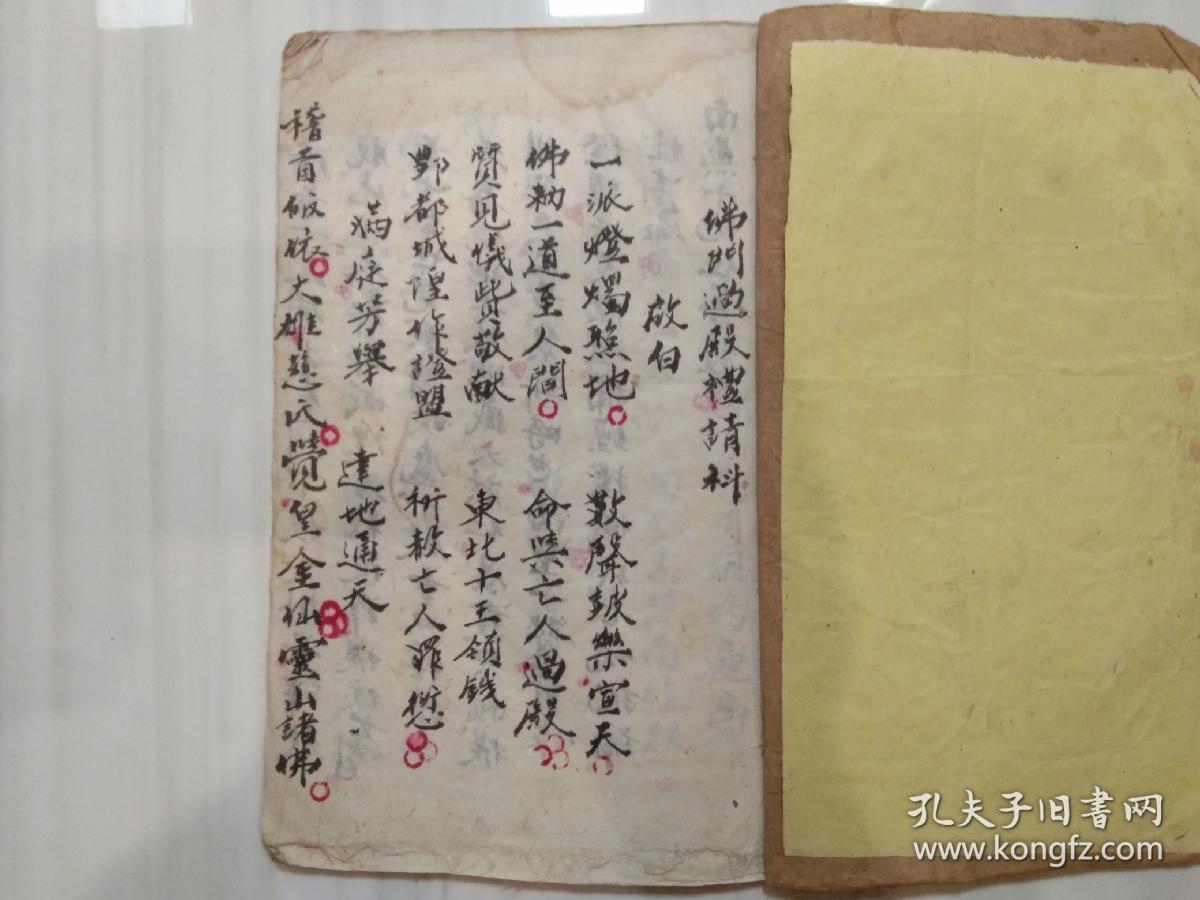 佛門過殿禮請科
啟白
一派燈燭照地 數聲鼓樂宣天
佛勅一道至人間 命與亡人過殿
賢見儀貲敬献 東北十王領錢
酆都城隍作證盟 祈赦亡人罪愆
滿庭芳舉 達地通天
稽首皈依大雄慈氏覺皇金仙靈山諸佛
孔夫子旧书网
www.kongfz.com